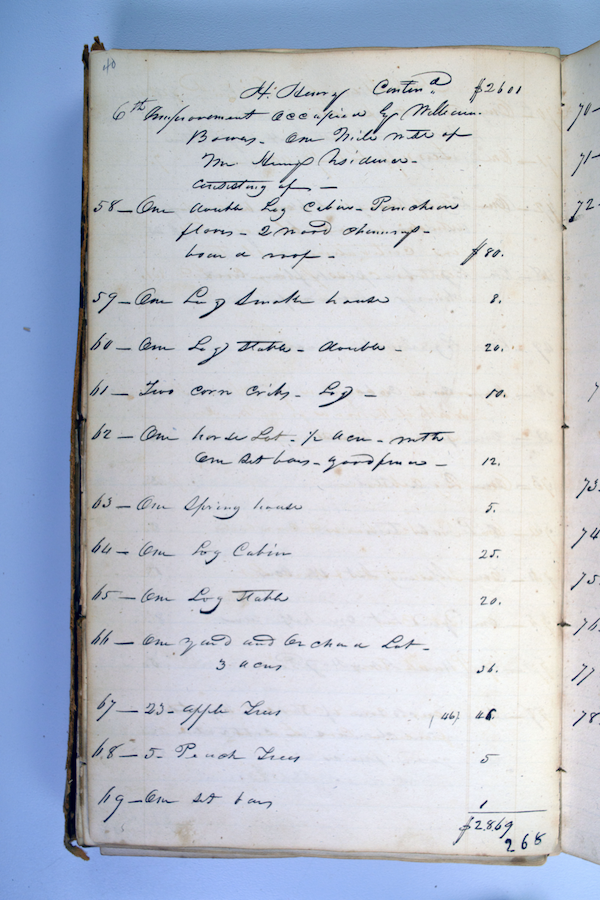 40
H. Henry Contind $2601
6th Improvement occupied by William
Bowers - One Mile north of
Mr Henrys Residence -
Consisting of -
58 - One double Log Cabin - Puncheon
floors - 2 wood chimneys -
board roof - $80.
59 - One Log Smoke house 8.
60 - One Log Stable - double - 20.
61 - Two corn cribs - Log - 10.
62 - One horse Lot - 1/2 Acre - with
One set bars - good fence - 12.
63 - One Spring house 5.
64 - One Log Cabin 25.
65 - One Log Stable 20.
66 - One yard and Orchard Lot -
3 acres 36.
67 - 23 - apple Trees (46) 46.
68 - 5 - Peach Trees 5
69 - One set bars 1
$2869
268
70 -
71 -
72 -
73 -
74
75 -
76 -
77
78